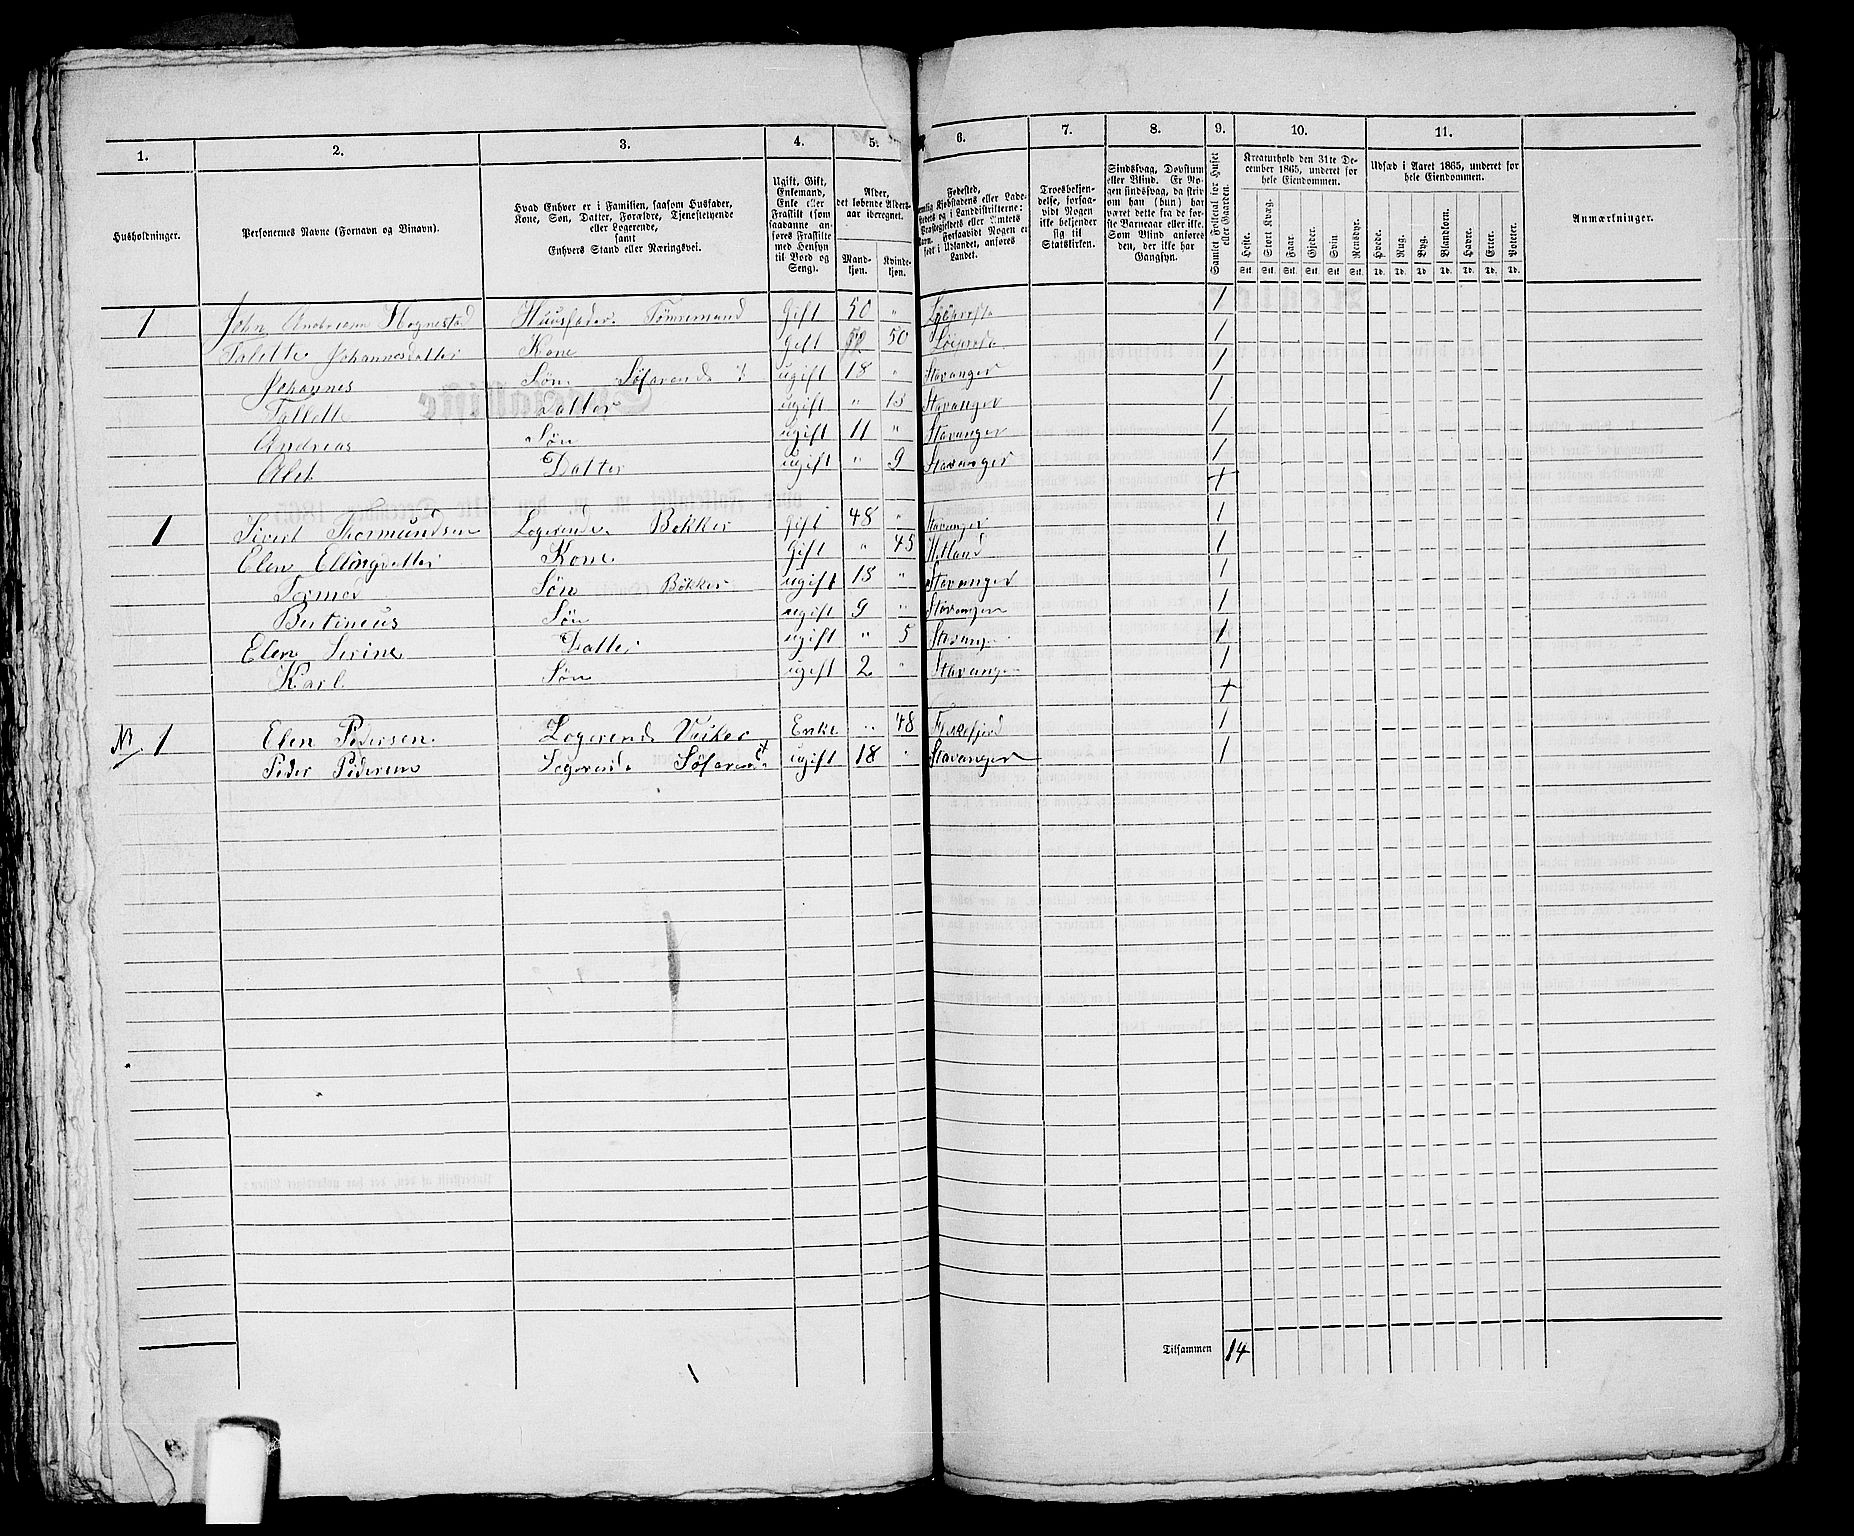 1. 2. 3. 4. 5. 6. 7. 8. 9. 10. 11.
Husholdninger.
Personernes Navne (Fornavn og Binavn).
Hvad Enhver er i Familien, saasom Husfader,
Kone, Søn, Datter, Forældre, Tjenestetyende
eller Logerende,
samt
Enhvers Stand eller Næringsvei.
Ugift, Gift,
Enkemand,
Enke eller
Fraskilt (som
saadanne an-
føres Fraskilte
med Hensyn
til Bord og
Seng).
Alder,
det løbende Alders-
aar iberegnet.
Mand-
kjøn.
Kvinde-
kjøn.
Fødested,
Kjøbstadens eller Lade-
stedets og i Landdistrikterne:
Præstegjeldets eller Amtets
Navn. Forsaavidt Nogen er
født i Udlandet, anføres
Landet.
Troesbekjen-
delse, forsaa-
vidt Nogen
ikke bekjender
sig til
Statskirken.
Sindssvag, Døvstum
eller Blind. Er No-
gen sindssvag, da skriv
om han (hun) har
været dette fra de før-
ste Barneaar eller ikke.
Som Blind anføres
den, der ikke har
Gangsyn.
Samlet Folketal for Huset
eller Gaarden.
Kreaturhold den 31te De-
cember 1865, underet for
hele Eiendommen.
Heste. Stort Kvæg. Faar. Gjeder. Svin. Rensdyr.
Stk. Stk. Stk. Stk. Stk. Stk.
Udsæd i Aaret 1865, underet for
hele Eiendommen.
Hvede. Rug. Byg. Blandkorn. Havre. Erter. Poteter.
Td. Td. Td. Td. Td. Td. Td.
Anmærkninger.
1 John Andreasen Hognestad Huusfader Tømremand Gift 50 " 1
Talette Johannesdatter Kone Gift 50 1
Johannes Søn Søfarende ugift 18 " Stavanger 1
Tallette Datter ugift " 13 Stavanger 1
Andreas Søn ugift 11 " Stavanger 1
Olet Datter ugift " 9 Stavanger 1
+
1 Sivert Thormundsen Logerende Bøkker Gift 48 " Stavanger 1
Elen Ellingdatter Kone Gift " 45 Hetland 1
Tormod Søn Bøkker ugift 18 " Stavanger 1
Bertineus Søn ugift 9 " Stavanger 1
Elen Serine Datter ugift " 5 Stavanger 1
Karl Søn ugift 2 " Stavanger 1
+
1 Elen Pedersen Logerende Enke " 48 1
Peder Pedersen Logerende Søfarende ugift 18 " Stavanger 1
Tilsammen 14